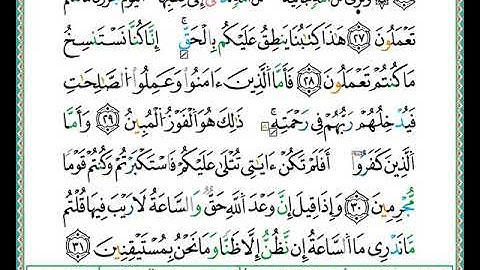 تَعْمَلُونَ ٢٧ هَٰذَا كِتَٰبُنَا يَنطِقُ عَلَيْكُم بِالْحَقِّ إِنَّا كُنَّا نَسْتَنسِخُ
مَا كُنتُمْ تَعْمَلُونَ ٢٨ فَأَمَّا الَّذِينَ ءَامَنُوا وَعَمِلُوا الصَّٰلِحَٰتِ
فَيُدْخِلُهُمْ رَبُّهُمْ فِي رَحْمَتِهِ ذَٰلِكَ هُوَ الْفَوْزُ الْمُبِينُ ٢٩ وَأَمَّا
الَّذِينَ كَفَرُوا أَفَلَمْ تَكُنْ ءَايَٰتِي تُتْلَىٰ عَلَيْكُمْ فَاسْتَكْبَرْتُمْ وَكُنتُمْ قَوْمًا
مُّجْرِمِينَ ٣٠ وَإِذَا قِيلَ إِنَّ وَعْدَ اللَّهِ حَقٌّ وَالسَّاعَةُ لَا رَيْبَ فِيهَا قُلْتُم
مَّا نَدْرِي مَا السَّاعَةُ إِن نَّظُنُّ إِلَّا ظَنًّا وَمَا نَحْنُ بِمُسْتَيْقِنِينَ ٣١